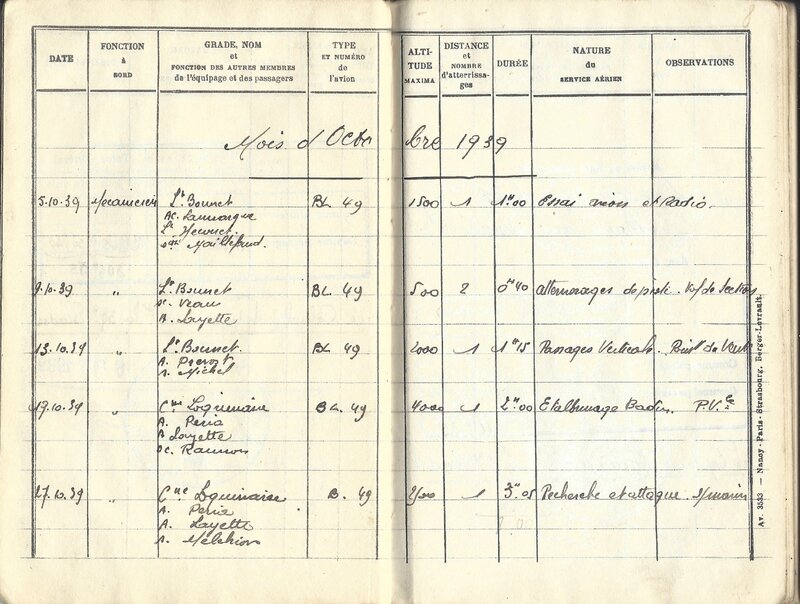 DATE
FONCTION
à
BORD
GRADE, NOM
et
FONCTION DES AUTRES MEMBRES
de l'équipage et des passagers
TYPE
ET NUMÉRO
de
l'avion
ALTI-
TUDE
MAXIMA
DISTANCE
et
NOMBRE
d'atterrissa-
ges
DURÉE
NATURE
du
SERVICE AÉRIEN
OBSERVATIONS
Mois d'Octobre 1939
5.10.39 Mécanicien Lt Bonnet BL 49 1500 1 1h00 Essai avion et Radio.
Sc. Lamarque
Lt
Sgt Maillefaud.
9.10.39 " Lt Bonnet BL 49 500 2 0h40 de piste.
Sc.
A. Layette
13.10.39 " Lt Bonnet. BL 49 2000 1 1h15 Passages Verticale.
A. Prevost
S. Michel
17.10.39 " Cne Loquinaise BL. 49 4000 1 2h00 Etalonnage Badin. P.V.
A. Peria
A. Layette
Sc.
27.10.39 " Cne Loquinaise B. 49 1 3h05 Recherche et attaque s/marin
A. Peria
A. Layette
S. Melchior
Av. 3533 — Nancy-Paris-Strasbourg, Berger-Levrault.